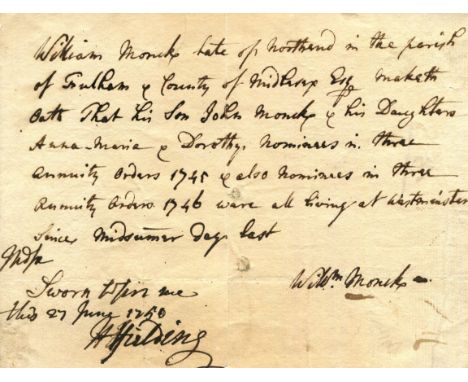 William Monck late of Northend in the parish
of Fulham & County of Middx Esqr maketh
Oath That his Son John Monck & his Daughters
Anna-Maria & Dorothy. Nominees in three
Annuity Orders 1745 & also Nominees in three
Annuity Orders 1746 were all living at Westminster
Since Midsumer Day last
Middx
Willm Monck
Sworn before me
this 27 June 1750
HFielding